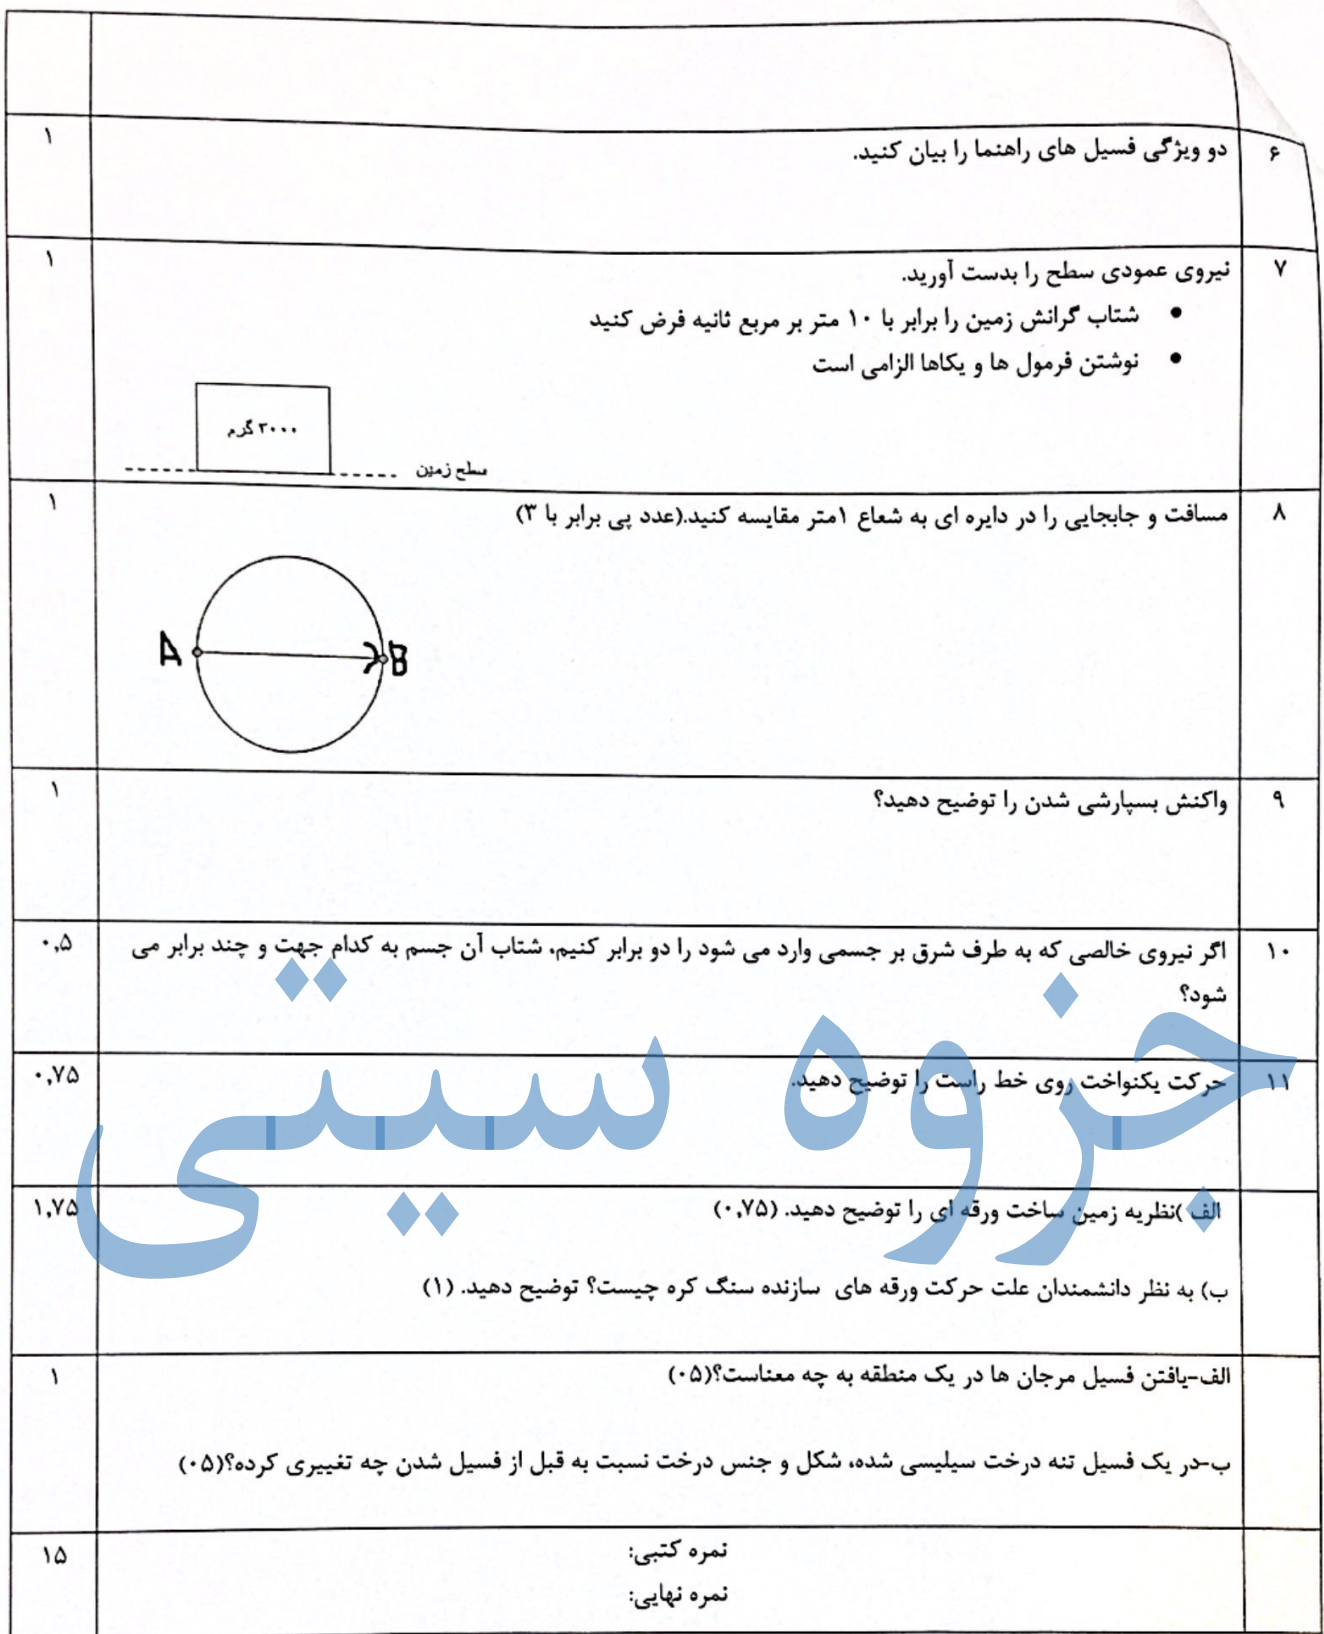 ۶ دو ویژگی فسیل های راهنما را بیان کنید. ۱
۷ نیروی عمودی سطح را بدست آورید. ۱
• شتاب گرانش زمین را برابر با ۱۰ متر بر مربع ثانیه فرض کنید
• نوشتن فرمول ها و یکاها الزامی است
۳۰۰۰ گرم
سطح زمین
۸ مسافت و جابجایی را در دایره ای به شعاع ۱متر مقایسه کنید.(عدد پی برابر با ۳) ۱
A B
۹ واکنش بسپارشی شدن را توضیح دهید؟ ۱
۱۰ اگر نیروی خالصی که به طرف شرق بر جسمی وارد می شود را دو برابر کنیم، شتاب آن جسم به کدام جهت و چند برابر می ۰,۵
شود؟
۱۱ حرکت یکنواخت روی خط راست را توضیح دهید. ۰,۷۵
جزوه سیتی
الف )نظریه زمین ساخت ورقه ای را توضیح دهید. (۰,۷۵) ۱,۷۵
ب) به نظر دانشمندان علت حرکت ورقه های سازنده سنگ کره چیست؟ توضیح دهید. (۱)
الف-یافتن فسیل مرجان ها در یک منطقه به چه معناست؟(۰۵) ۱
ب-در یک فسیل تنه درخت سیلیسی شده، شکل و جنس درخت نسبت به قبل از فسیل شدن چه تغییری کرده؟(۰۵)
نمره کتبی: ۱۵
نمره نهایی: